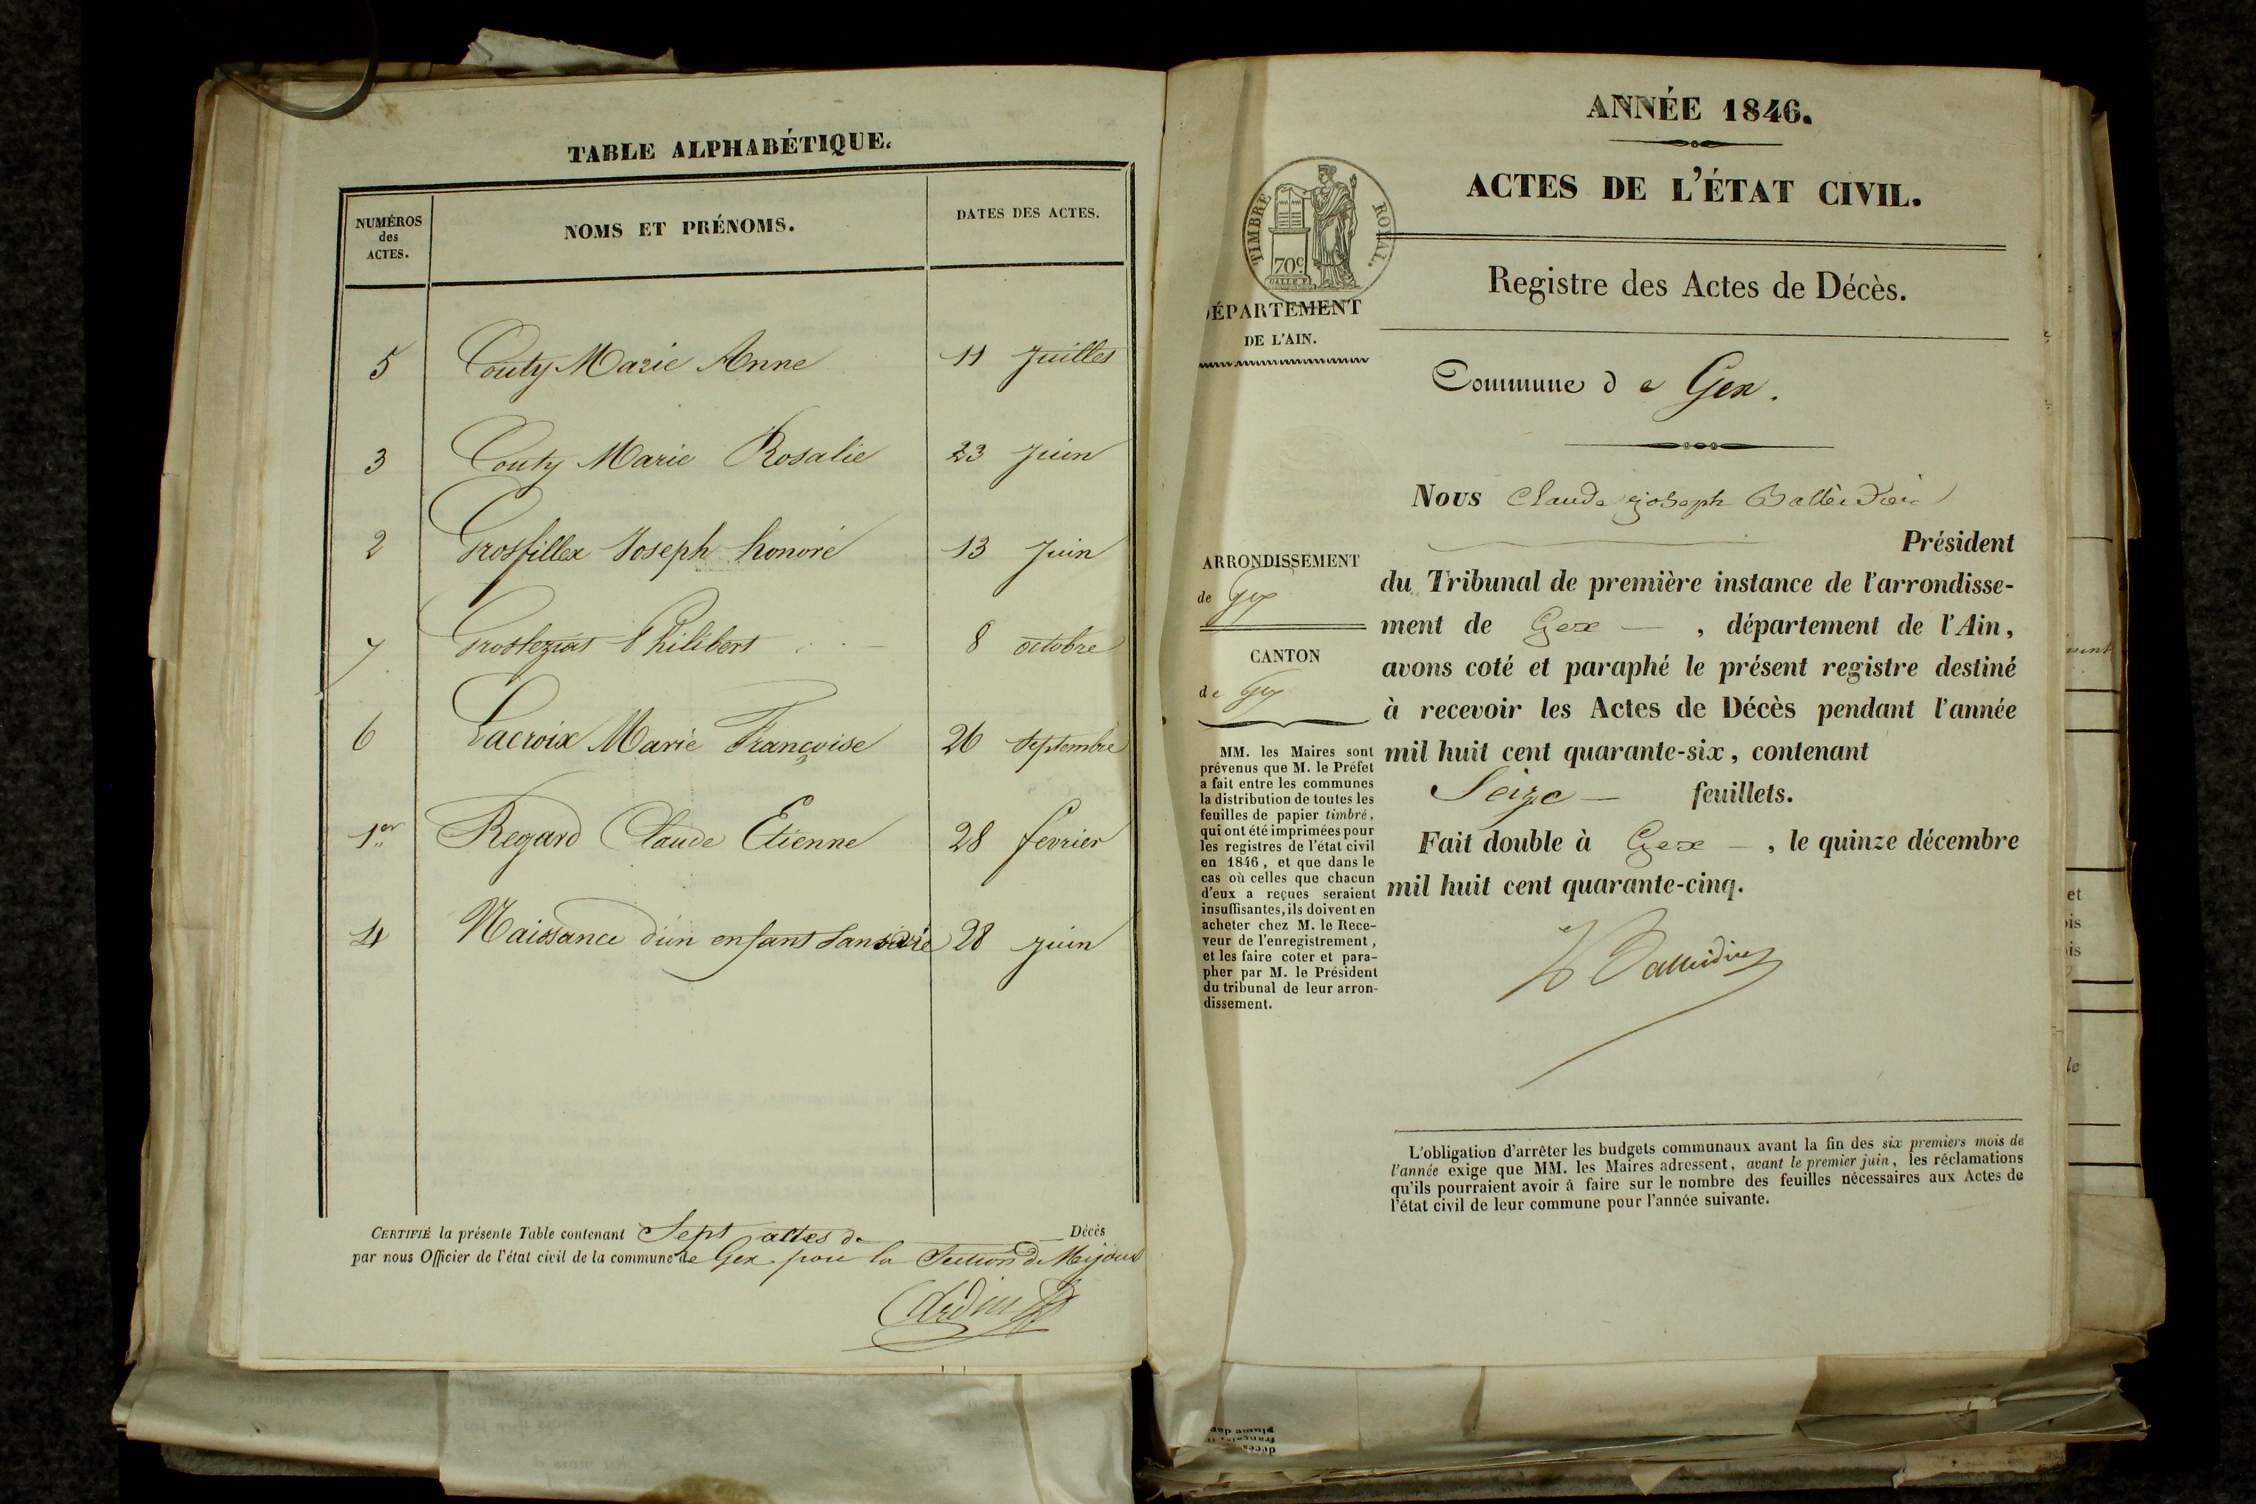 TABLE ALPHABÉTIQUE.
NUMÉROS
des
ACTES.
NOMS ET PRÉNOMS.
DATES DES ACTES.
5 Couty Marie Anne 11 Juillet
3 Couty Marie Rosalie 23 Juin
2 Grosfillex Joseph honoré 13 Juin
7 Philibert 8 octobre
6 Lacroix Marie Françoise 26 Septembre
1er Regard Claude Etienne 28 fevrier
4 Naissance d'un enfant sans vie 28 juin
CERTIFIÉ la présente Table contenant Sept actes de Décès
par nous Officier de l'état civil de la commune de Gex pour la Section de Mijoux
ANNÉE 1846.
ACTES DE L'ÉTAT CIVIL.
TIMBRE ROYAL.
70c
Registre des Actes de Décès.
DÉPARTEMENT
DE L'AIN.
Commune de Gex.
ARRONDISSEMENT
de Gex
CANTON
de Gex
MM. les Maires sont
prévenus que M. le Préfet
a fait entre les communes
la distribution de toutes les
feuilles de papier timbré,
qui ont été imprimées pour
les registres de l'état civil
en 1846, et que dans le
cas où celles que chacun
d'eux a reçues seraient
insuffisantes, ils doivent en
acheter chez M. le Rece-
veur de l'enregistrement,
et les faire coter et para-
pher par M. le Président
du tribunal de leur arron-
dissement.
Nous Claude joseph
Président
du Tribunal de première instance de l'arrondisse-
ment de Gex, département de l'Ain,
avons coté et paraphé le présent registre destiné
à recevoir les Actes de Décès pendant l'année
mil huit cent quarante-six, contenant
Seize feuillets.
Fait double à Gex, le quinze décembre
mil huit cent quarante-cinq.
L'obligation d'arrêter les budgets communaux avant la fin des six premiers mois de
l'année exige que MM. les Maires adressent, avant le premier juin, les réclamations
qu'ils pourraient avoir à faire sur le nombre des feuilles nécessaires aux Actes de
l'état civil de leur commune pour l'année suivante.